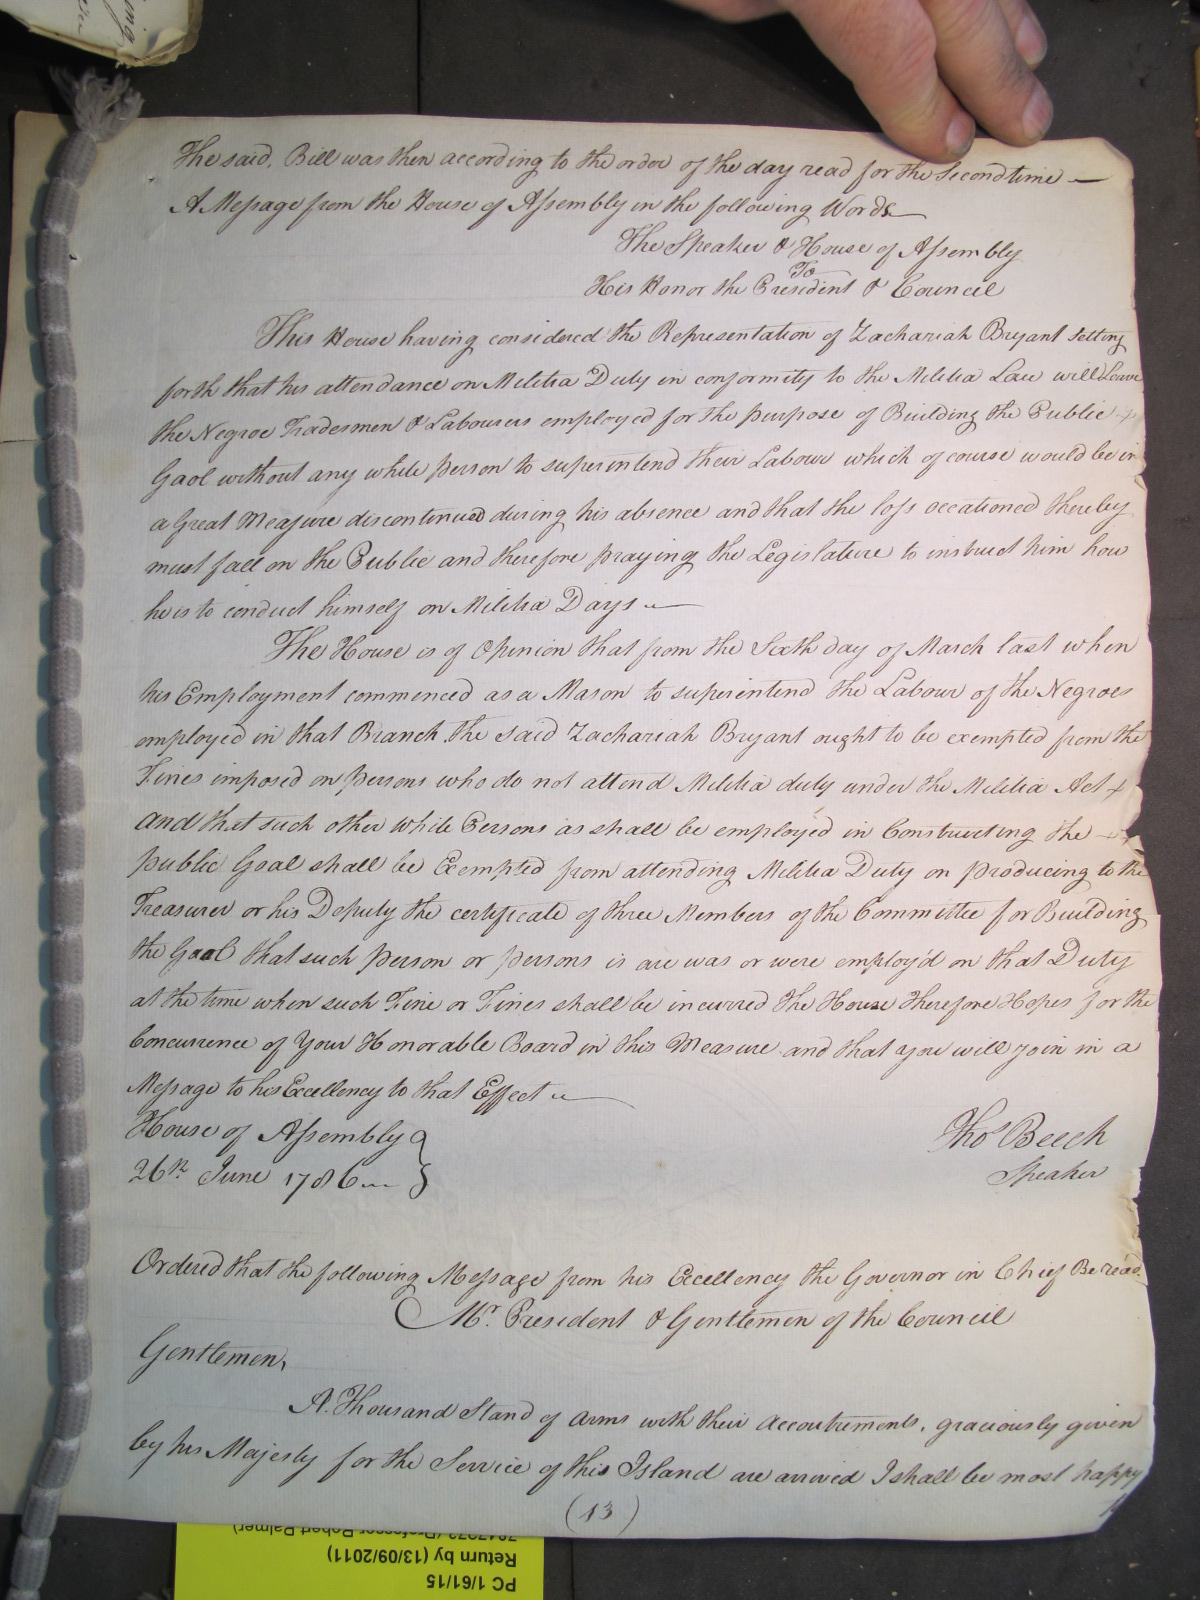 The said Bill was then according to the order of the day read for the Second time —
A Message from the House of Assembly in the following Words —
The Speaker & House of Assembly
To
His Honor the President & Council
This House having considered the Representation of Zachariah Bryant setting
forth that his attendance on Militia Duty in conformity to the Militia Law will Leave
the Negroe Tradesmen & Labourers employed for the purpose of Building the Public
Gaol without any white person to superintend their Labour which of course would be in
a Great Measure discontinued during his absence and that the loss occationed thereby
must fall on the Public and therefore praying the Legislature to instruct him how
he is to conduct himself on Militia Days —
The House is of Opinion that from the Sixth day of March last when
his Employment commenced as a Mason to superintend the Labour of the Negroes
employed in that Branch the said Zachariah Bryant ought to be exempted from the
Fines imposed on persons who do not attend Militia duty under the Militia Act
And that such other White Persons as shall be employed in Constructing the —
public Goal shall be Exempted from attending Militia Duty on producing to the
Treasurer or his Deputy the certificate of three Members of the Committee for Building
the Gaol that such person or persons is are was or were employ'd on that Duty
at the time when such Fine or Fines shall be incurred The House therefore Hopes for the
Concurrence of Your Honorable Board in this Measure and that you will join in a
Message to his Excellency to that Effect —
House of Assembly }
26th June 1786 — }
Thos Beech
Speaker
Ordered that the following Message from his Excellency the Governor in Chief Be read.
Mr. President & Gentlemen of the Council
Gentlemen,
A Thousand Stand of Arms with their Accoutrements, graciously given
by his Majesty for the Service of this Island are arrived I shall be most happy
(13)
PC 1/61/15
Return by (13/09/2011)
(Professor Robert Palmer)